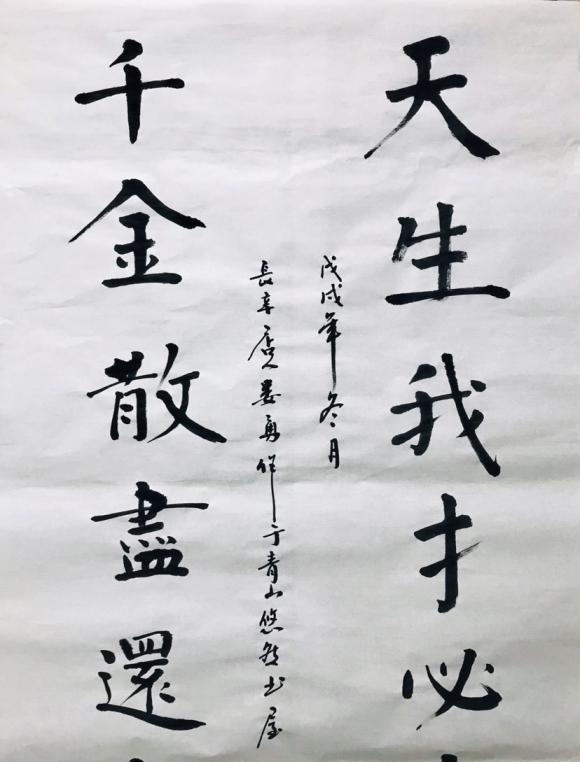 天生我才必
戊戌年冬月
長辛店人婁勇作于青山悠然书屋
千金散盡還